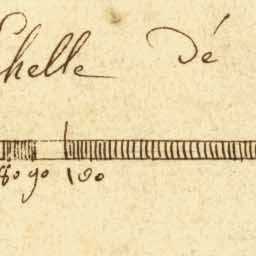 Echelle Dé
80 90 100